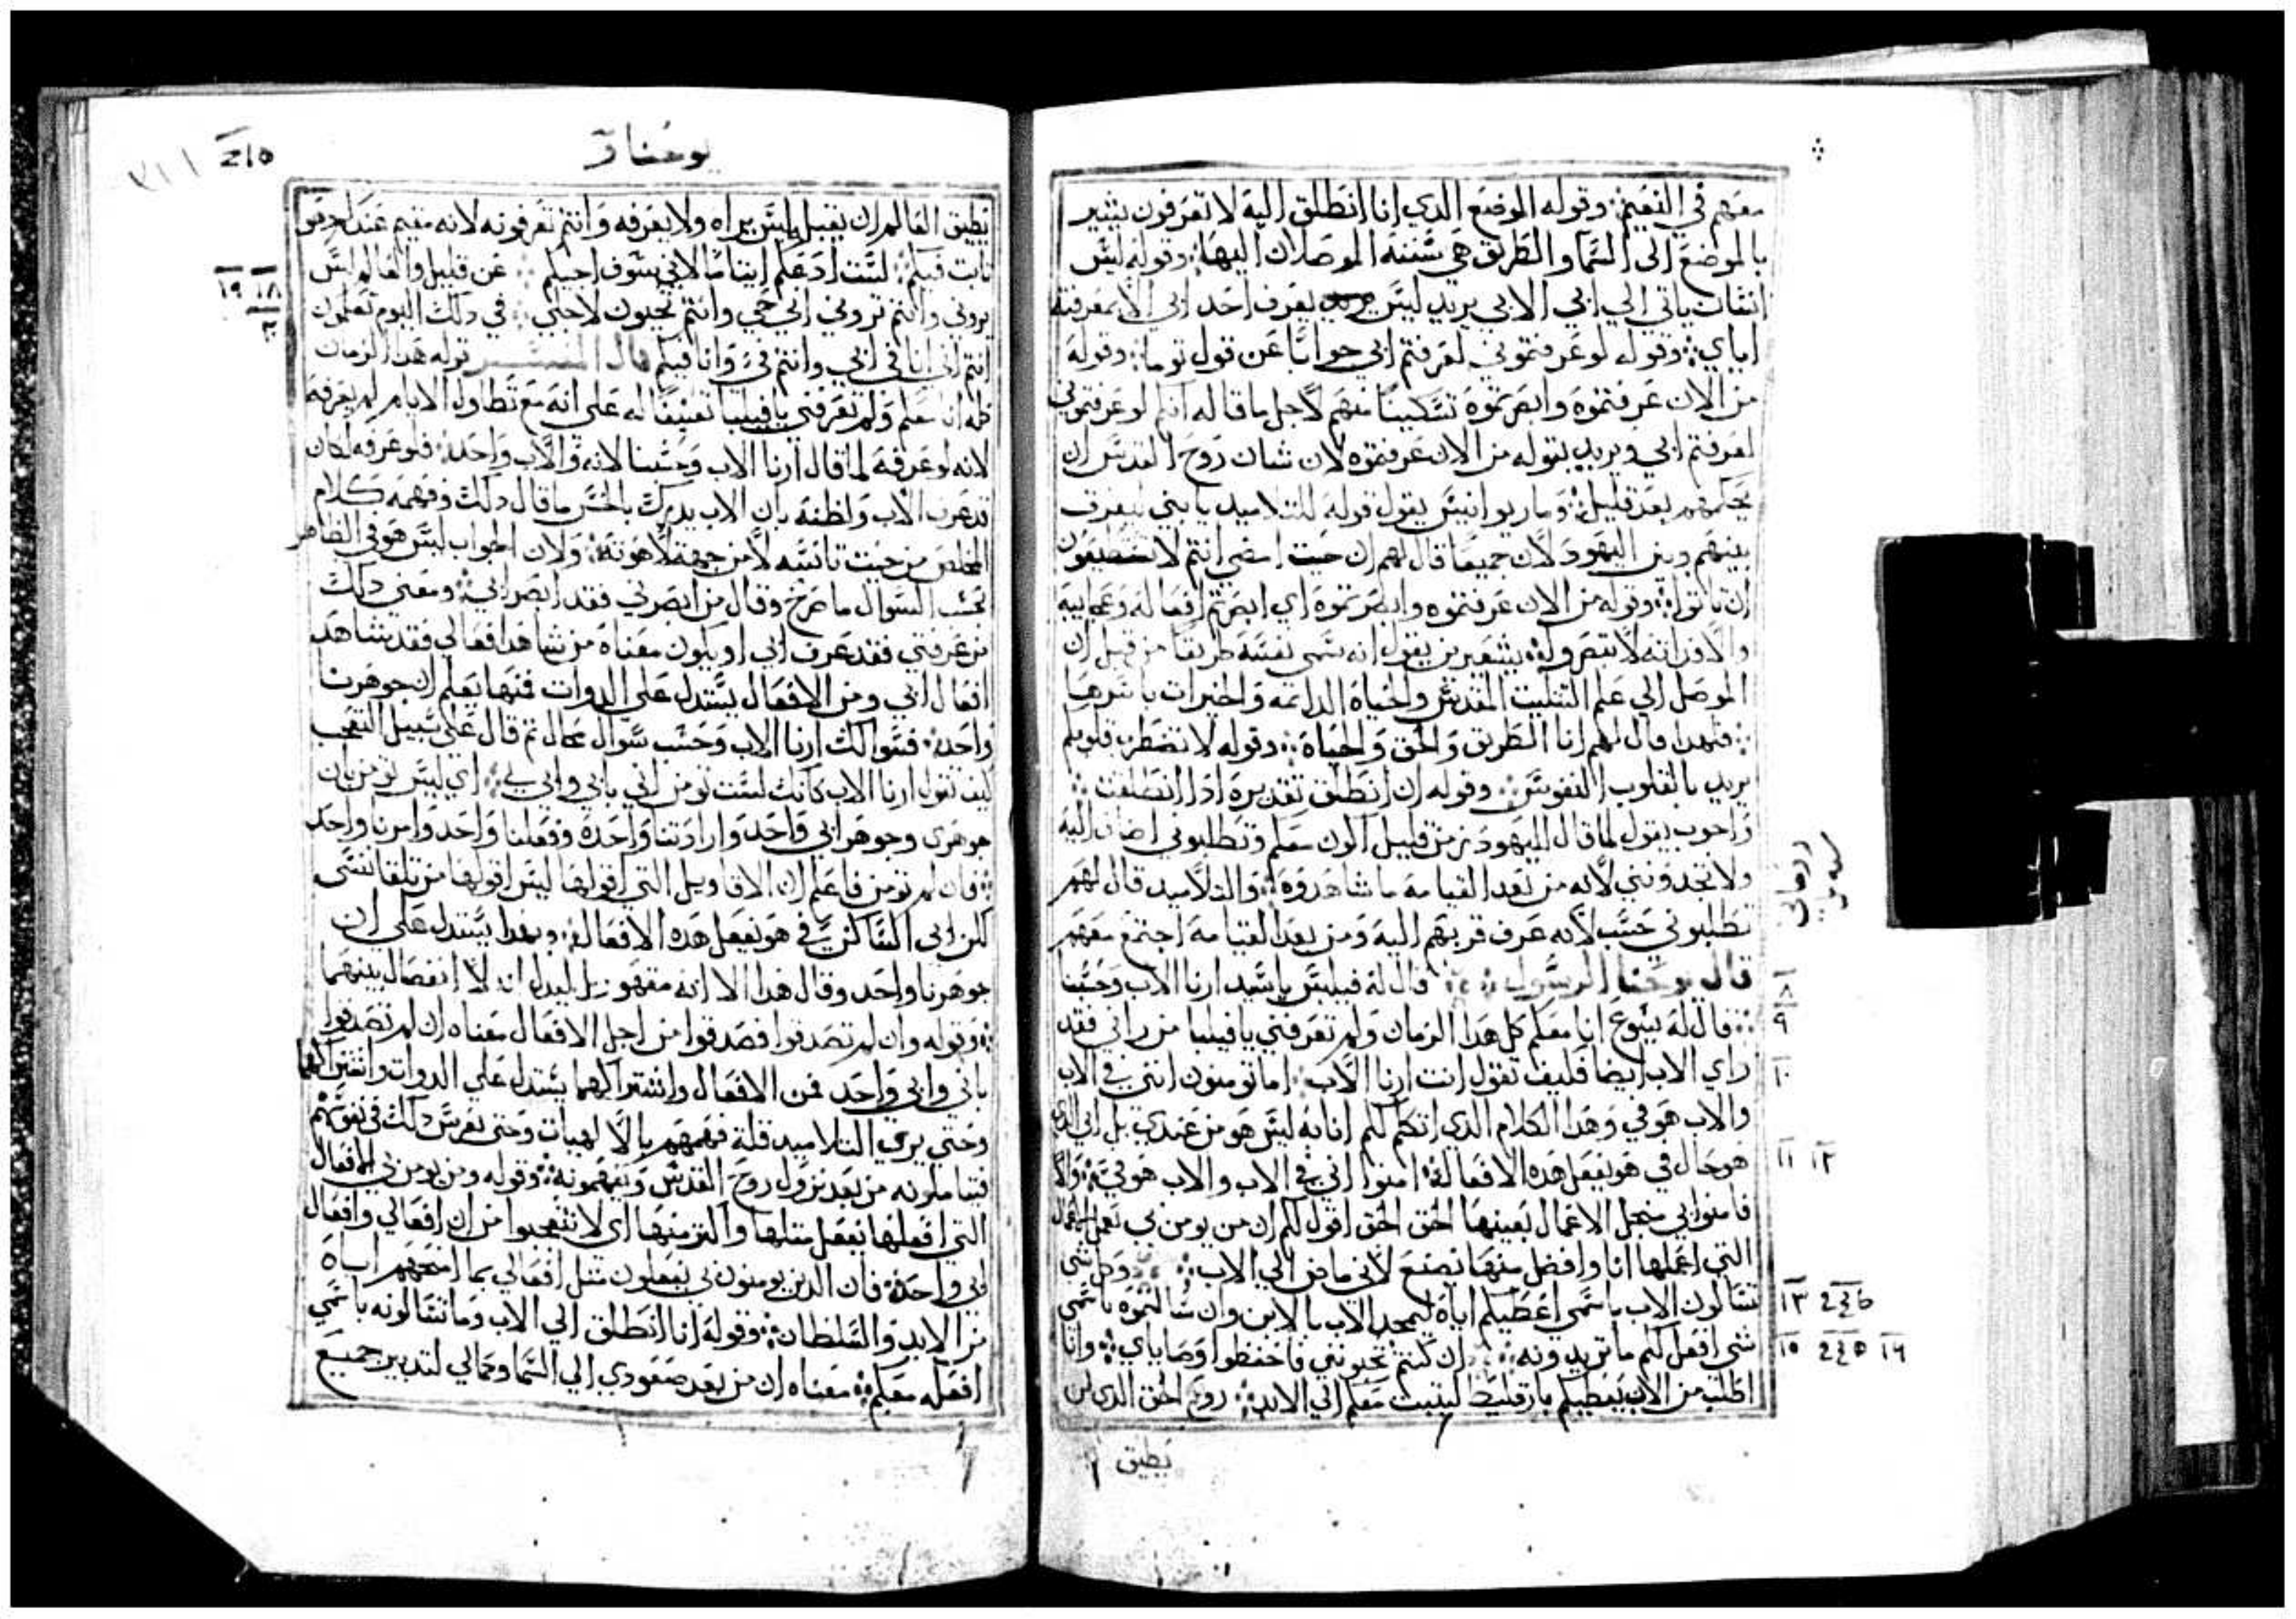 معهم في النعيم: وقوله الموضع الذي انا انطلق اليه لا تعرفون يشير
بالموضع الى السما والطريق هي سننه الموصلات اليها: وقوله ليس
انسان ياتي الي ابي الا بي يريد ليس يعرف احد ابي الا بمعرفته
اياي: وقوله لو عرفتموني لعرفتم ابي جوابا عن قول توما: وقوله
من الان عرفتموه وابصرتموه تسكينا منهم لاجل ما قاله انكم لو عرفتموني
لعرفتم ابي ويريد بقوله من الان عرفتموه لان شان روح القدس ان
يحكمهم بعد قليل: وماريوانيس يقول قوله للتلاميد يا بني ليفرق
بينهم وبين اليهود لان جميعا قال لهم ان حيث امضي انتم لا تستطيعون
ان تاتوا: وقوله من الان عرفتموه وابصرتموه اي ابصرتم افعاله وعجايبه
والا فذاته لا تبصر وله بيتغيرين يقول انه سمى نفسه طريقا من قبل ان
الموصل الي علم التثليث المقدس والحياه الدايمه والخيرات باسرها
: فلهدا قال لهم انا الطريق والحق والحياة: وقوله لا تضطرب قلوبكم
يريد بالقلوب النفوس: وقوله ان انطلق تقديره ادا انطلقت:
واحوب يقول لما قال لليهود من قليل اكون معكم وتطلبوني اضاف اليه
ولا تجدونني لانه من بعد القيامة ما شاهدوه: والتلاميد قال لهم
تطلبوني حسب لانه عرف قربهم اليه ومن بعد القيامة اجتمع معهم
قال يوحنا الرسول: قال له فيلبس يا سيد ارنا الاب وحسبنا
: قال له يسوع انا معكم كل هدا الزمان ولم تعرفني يا فيلبا من راني فقد
راي الاب ايضا فكيف تقول انت ارنا الاب: اما تومنون انني في الاب
والاب هو في وهدا الكلام الدي اتكلم لكم انا به ليس هو من عندي بل ابي الدي
هو حال في هو يفعل هده الافعال: امنوا اني في الاب والاب هو في: والا
فامنوا بي من اجل الاعمال بعينها الحق الحق اقول لكم ان من يومن بي يعمل الاعمال
التي اعملها انا وافضل منها يصنع لاني ماض الي الاب: وكل شي
تسالون الاب باسمي اعطيكم اياه ليمجد الاب بالابن وان سالتموه باسمي
شي افعل لكم ما تريدونه: ان كنتم تحبونني فاحفظوا وصاياي: وانا
اطلب من الاب يعطيكم بارقليط ليثبت معكم الي الابد: روح الحق الدي لن
٨
٩
١٠
١١ ١٢
١٣
١٥ ١٦
يطيق
يوحنا
يطيق العالم ان يقبله ليس يراه ولا يعرفه وانتم تعرفونه لانه مقيم عندكم وهو
ثابت فيكم: لست ادعكم ايتاما لاني سوف اجيكم: عن قليل والعالم ليس
يروني وانتم تروني اني حي وانتم تحيون لاجلي: في دلك اليوم تعلمون
انتم اني انا في ابي وانتم في وانا فيكم قال المفسر قوله هدا الزمان
كله انا معكم ولم تعرفني يا فيلبا تعنيفا له على انه مع تطاول الايام لم يعرفه
لانه لو عرفه لما قال ارنا الاب وحسبنا لانه والاب واحد: فلو عرفه لكان
قد عرف الاب ولظنه بان الاب يدرك بالحس ما قال دلك وفهمه كلام
المخلص من حيث تانسه لا من جهة لاهوته: ولان الجواب ليس هو في الظاهر
بحسب السوال ما صرح وقال من ابصرني فقد ابصر ابي: ومعنى دلك
من عرفني فقد عرف ابي او يكون معناه من شاهد افعالي فقد شاهد
افعال ابي ومن الافعال يستدل علي الدوات فمنها يعلم ان جوهرنا
واحد: فسوالك ارنا الاب وحسب سوال محال ثم قال على سبيل التعجب
كيف تقول ارنا الاب كانك لست تومن اني بابي وابي بي: اي ليس تومن بان
جوهري وجوهر ابي واحد وارادتنا واحدة وفعلنا واحد وامرنا واحد
: فان لم تومن فاعلم ان الاقاويل التي اقولها ليس اقولها من تلقا نفسي
لكن ابي الساكن في هو يفعل هده الافعال: وبهدا يستدل على ان
جوهرنا واحد وقال هدا الا انه معهو ليدل انه لا انفصال بينهما
: وقوله وان لم تصدقوا فصدقوا من اجل الافعال معناه ان لم تصدقوا
باني وابي واحد فمن الافعال واشتراكهما يستدل على الدوات واتفاقهما
وحتي يري التلاميد قلة فهمهم بالالهيات وحتى يغرس دلك في نفوسهم
فيتاملونه من بعد نزول روح القدس ويفهمونه: وقوله ومن يومن بي الافعال
التي افعلها يفعل مثلها واكثر منها اي لا تتعجبوا من ان افعالي وافعال
ابي واحدة: فان الدين يومنون بي يفعلون مثل افعالي بما امنحهم اياه
من الايد والسلطان: وقوله انا انطلق الي الاب وما تسالونه باسمي
افعله معكم: معناه ان من بعد صعودي الي السما وكمالي لتدبير جميع
١٨ ١٩